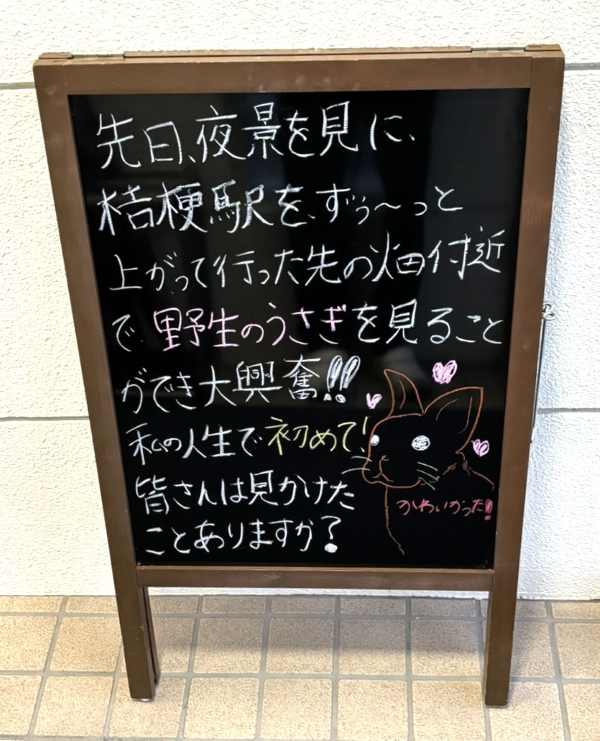 先日、夜景を見に、
桔梗駅を、ずぅ〜っと
上がって行った先の畑付近
で野生のうさぎを見ること
ができ大興奮!!
私の人生で初めて!
皆さんは見かけた
ことありますか?
かわいかった!!